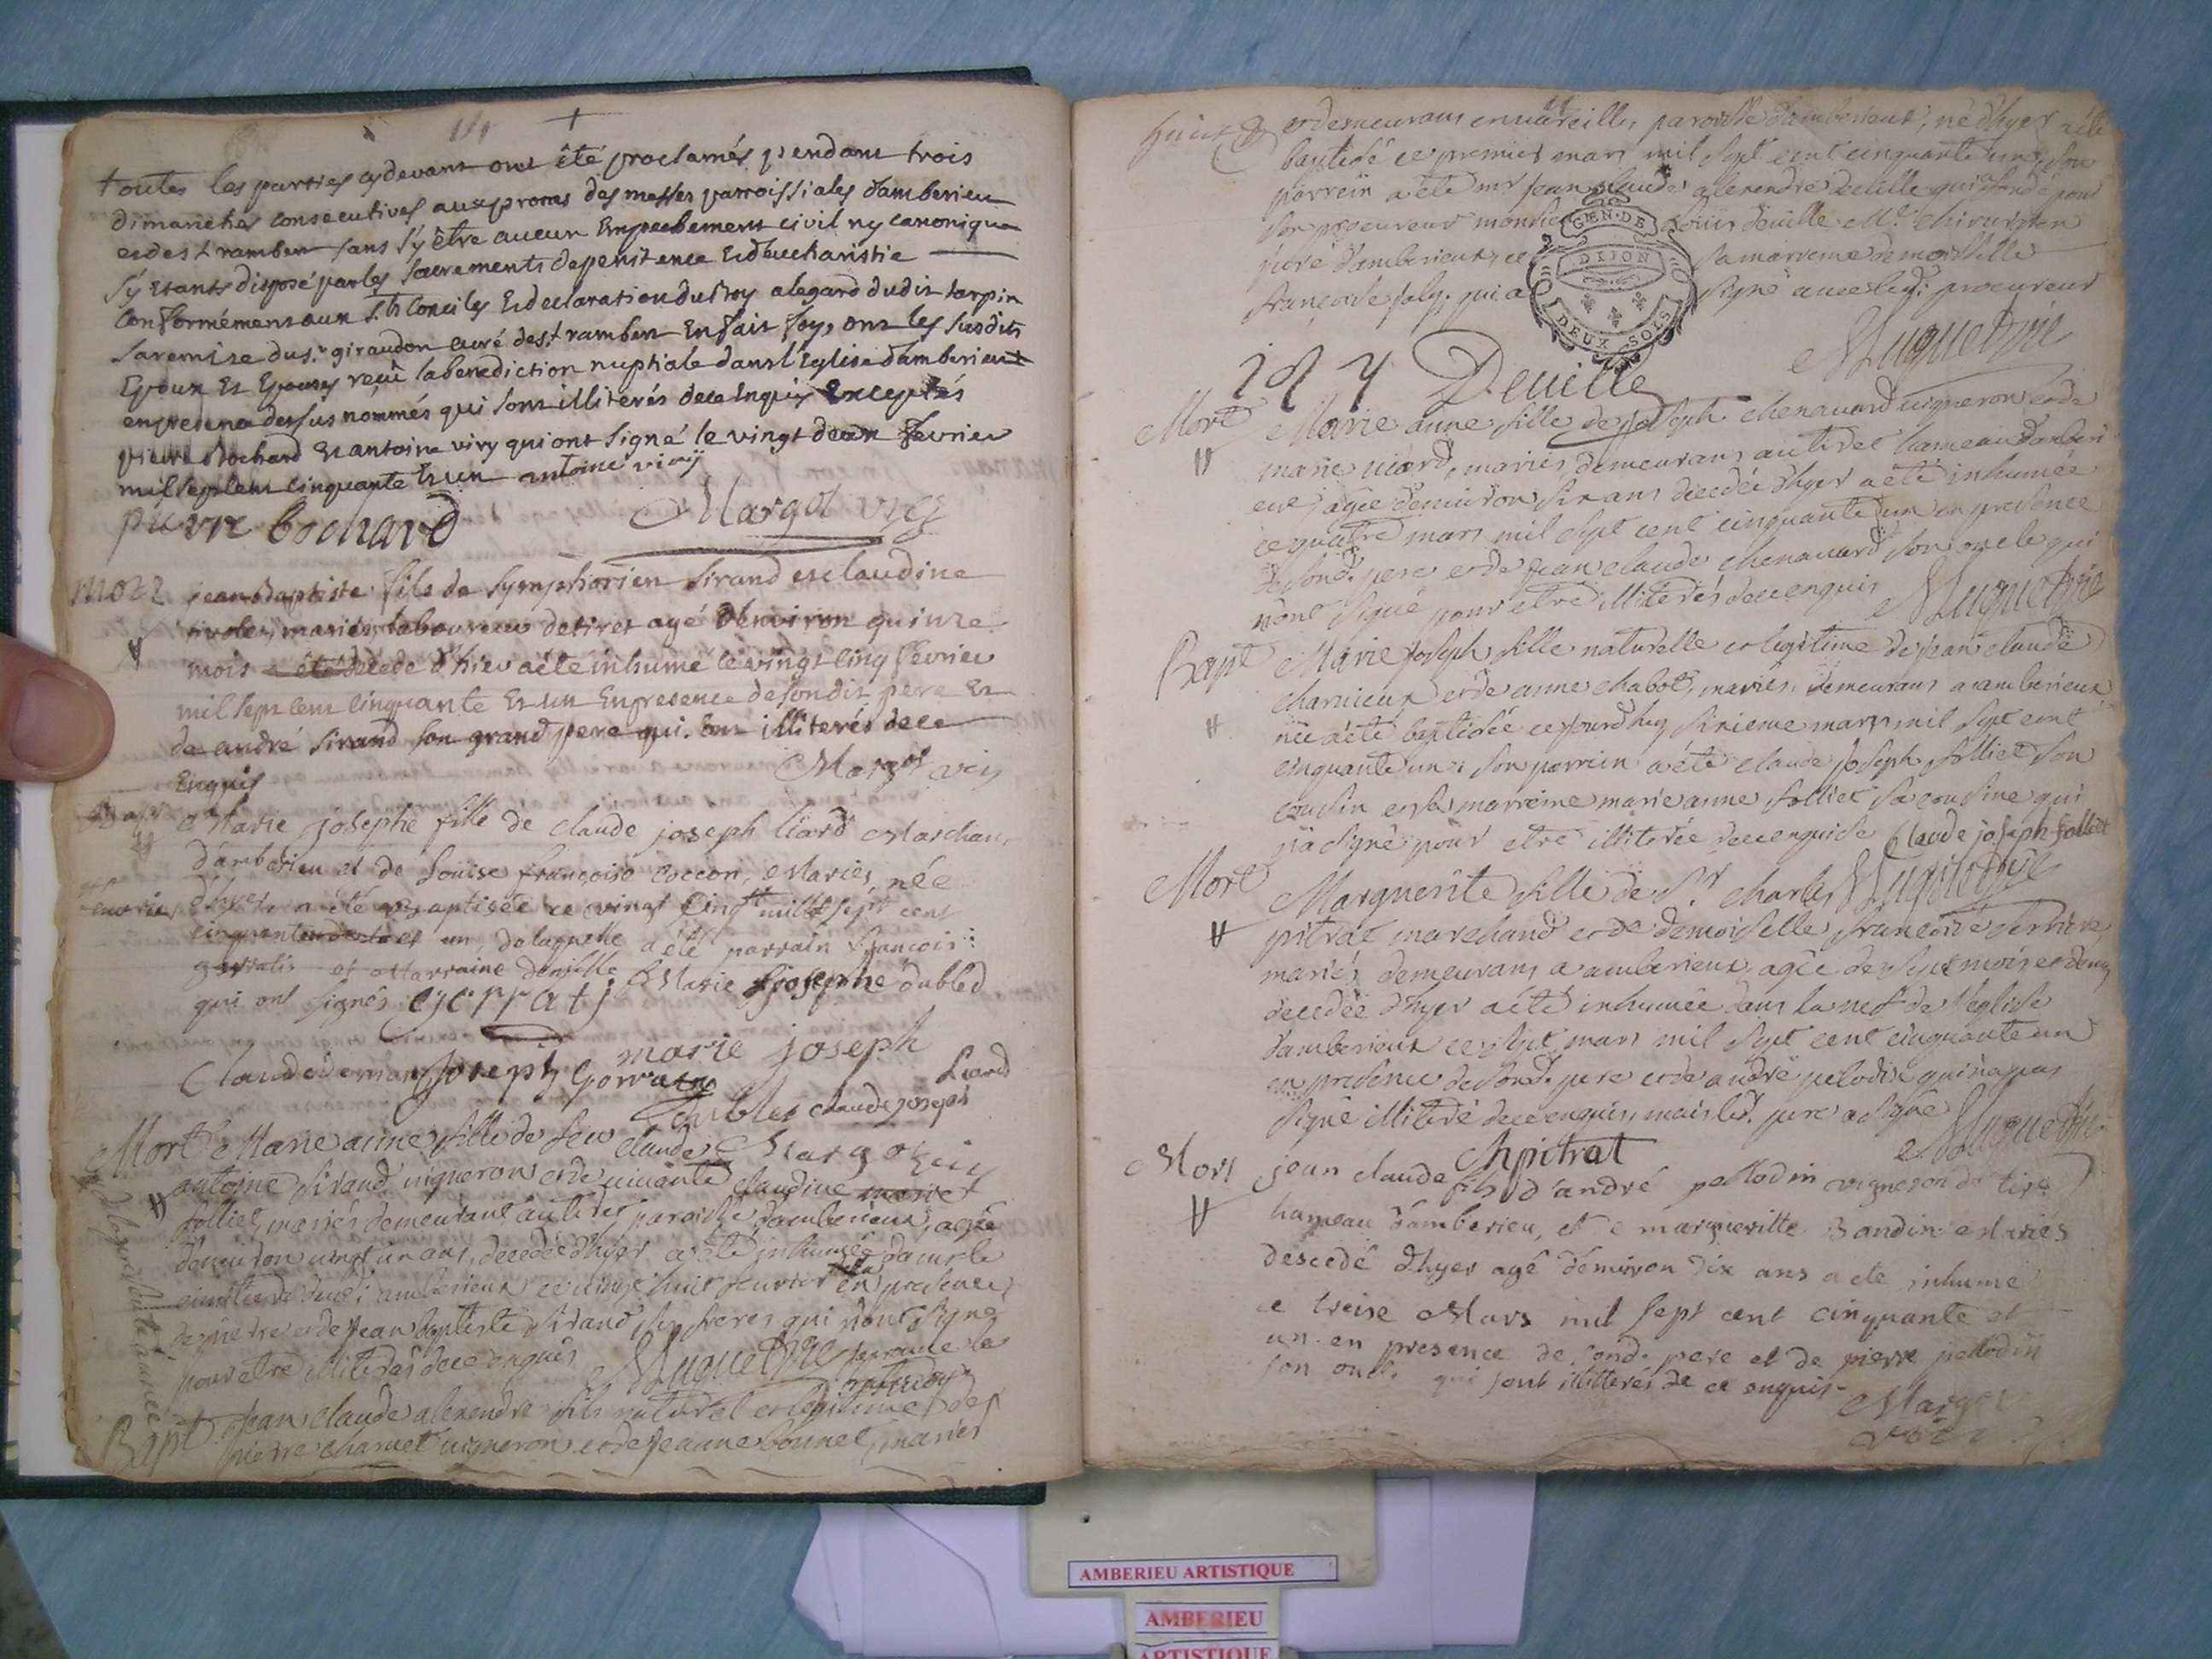 toutes les parties cydevant ont été proclamés pendant trois
dimanches consecutives aux prones des messes parroissiales damberieu
et de st rambert sans s'y être aucun Empechement civil ny canonique
s'y étants disposé par les sacrements de penitence Et deucharistie
Conformément aux sts Conciles Et declaration du Roy a legard dudit tarpin
sa remise du sr giraudon curé de st rambert En fait foy, ont les susdits
Epoux Et Epouses reçû la benediction nuptiale dans l'Eglise damberieux
en presence dessus nommés qui sont illiterés de ce Enquis Exceptés
pierre Bochard Et antoine viry qui ont signé le vingt deux fevrier
mil sept cent cinquante Et un antoine viry
pierre bochard Margot vic
mort jean baptiste fils de symphorien sirand et claudine
mariés laboureur de tiret agé d'environ quinze
mois a été decede d'hier a été inhumé le vingt cinq fevrier
mil sept cent cinquante Et un En presence de sondit pere Et
de andré sirand son grand pere qui sont illiterés de ce
Enquis Margot vic
Marie josephe fille de claude joseph liard Marchand
d'amberieu et de Louise françoise coccon, Mariés, née
d'hyer, a été baptisée ce vingt cinq mille sept cent
cinquante et un, de laquelle a été parrain françois
gerratis et Marraine demlle Marie josephe dubled
qui ont signés gerratj
marie joseph
Claude joseph gorraty Liard
dubled claude joseph
Mort Marie anne fille de feu claude Margot vic
antoine sirand vigneron et de vivante claudine
folliet, mariés demeurant au tiret paroisse d'amberieux, agée
d'environ vingt un ans, decedée d'hyer a été inhumée dans le
cimetiere dud. amberieux ce vingt huit fevrier en presence
de et de jean baptiste sirand ses freres qui n'ont signé
pour etre illiterés de ce enquis Huguet vic
Bapt Jean claude alexandre fils naturel et legitime de
pierre charvet vigneron et de jeanne bonnet, mariés
et demeurans en vareilles paroisse d'amberieux, né d'hyer a été
baptisé ce premier mars mil sept cent cinquante un, son
parrein a été mr jean claude alexandre deville qui a fondé pour
son procureur monsieur Louis deville Me chirurgien
juré d'amberieux, et sa marreine demoiselle
françoise qui a signé avec led. procureur
Deville Huguet vic
Mort Marie anne fille de joseph chenavard vigneron et de
marie mariés demeurans au tiret hameau d'amberi
eux agée d'environ six ans decedée d'hyer a été inhumée
ce quatre mars mil sept cent cinquante un en presence
de sond. pere et de jean claude chenavard son oncle qui
n'ont signé pour etre illiterés de ce enquis Huguet vic
Bapt Marie joseph fille naturelle et legitime de jean claude
charvieux et de anne chabot, mariés, demeurans a amberieux
née a été baptisée ce jourd'huy sixieme mars mil sept cent
cinquante un: son parrein a été claude joseph folliet son
cousin et sa marreine marie anne folliet sa cousine qui
n'a signé pour etre illiterée de ce enquise Claude joseph folliet
Mort Marguerite fille de Sr charles Huguet vic
pitrat marchand et de demoiselle françoise
mariés demeurans a amberieux, agée de sept mois et demy
decedée d'hyer a été inhumée dans la nef de l'eglise
d'amberieux ce sept mars mil sept cent cinquante un
en presence de sond. pere et de andré pelodin qui n'a pas
signé illiteré de ce enquis, mais led. pere a signé
Chpitrat Huguet vic
Mort jean claude fils d'andré pellodin vigneron de tiret
hameau d'amberieu, et de margueritte Bandin Mariés
descedé d'hyer agé d'environ dix ans a ete inhume
ce treise Mars mil sept cent cinquante et
un en presence de sond. pere et de pierre pellodin
son oncle qui sont illitterés de ce enquis
Margot
vic
GEN. DE
DIJON
DEUX SOLS
AMBERIEU ARTISTIQUE
AMBERIEU
ARTISTIQUE